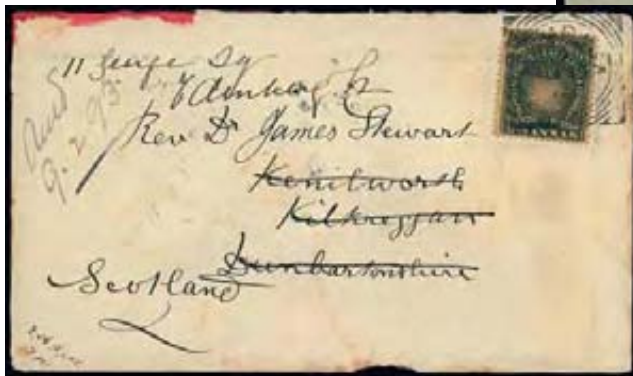 11 George Sq
Edinburgh
Rev Dr James Stewart
Kenilworth
Kilkreggan
Dunbartonshire
Scotland
9.2.93